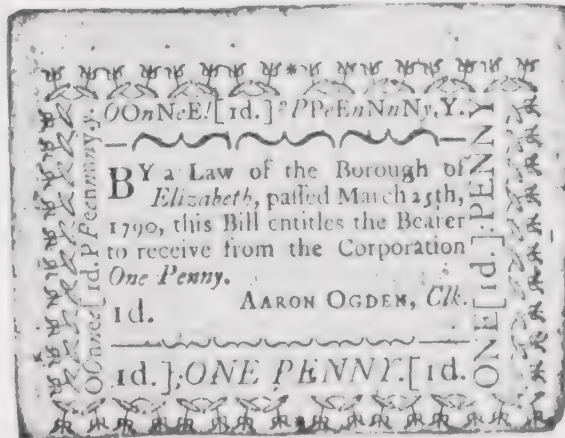 OOnNeE![1d.]?PPeEnNnNy,Y.
BY a Law of the Borough of
Elizabeth, paſſed March 25th,
1790, this Bill entitles the Bearer
to receive from the Corporation
One Penny.
1d. AARON OGDEN, Clk.
1d.];ONE PENNY.[1d.
OOnnee[1d.PPeennnny.y.
ONE[1d.];PENNY